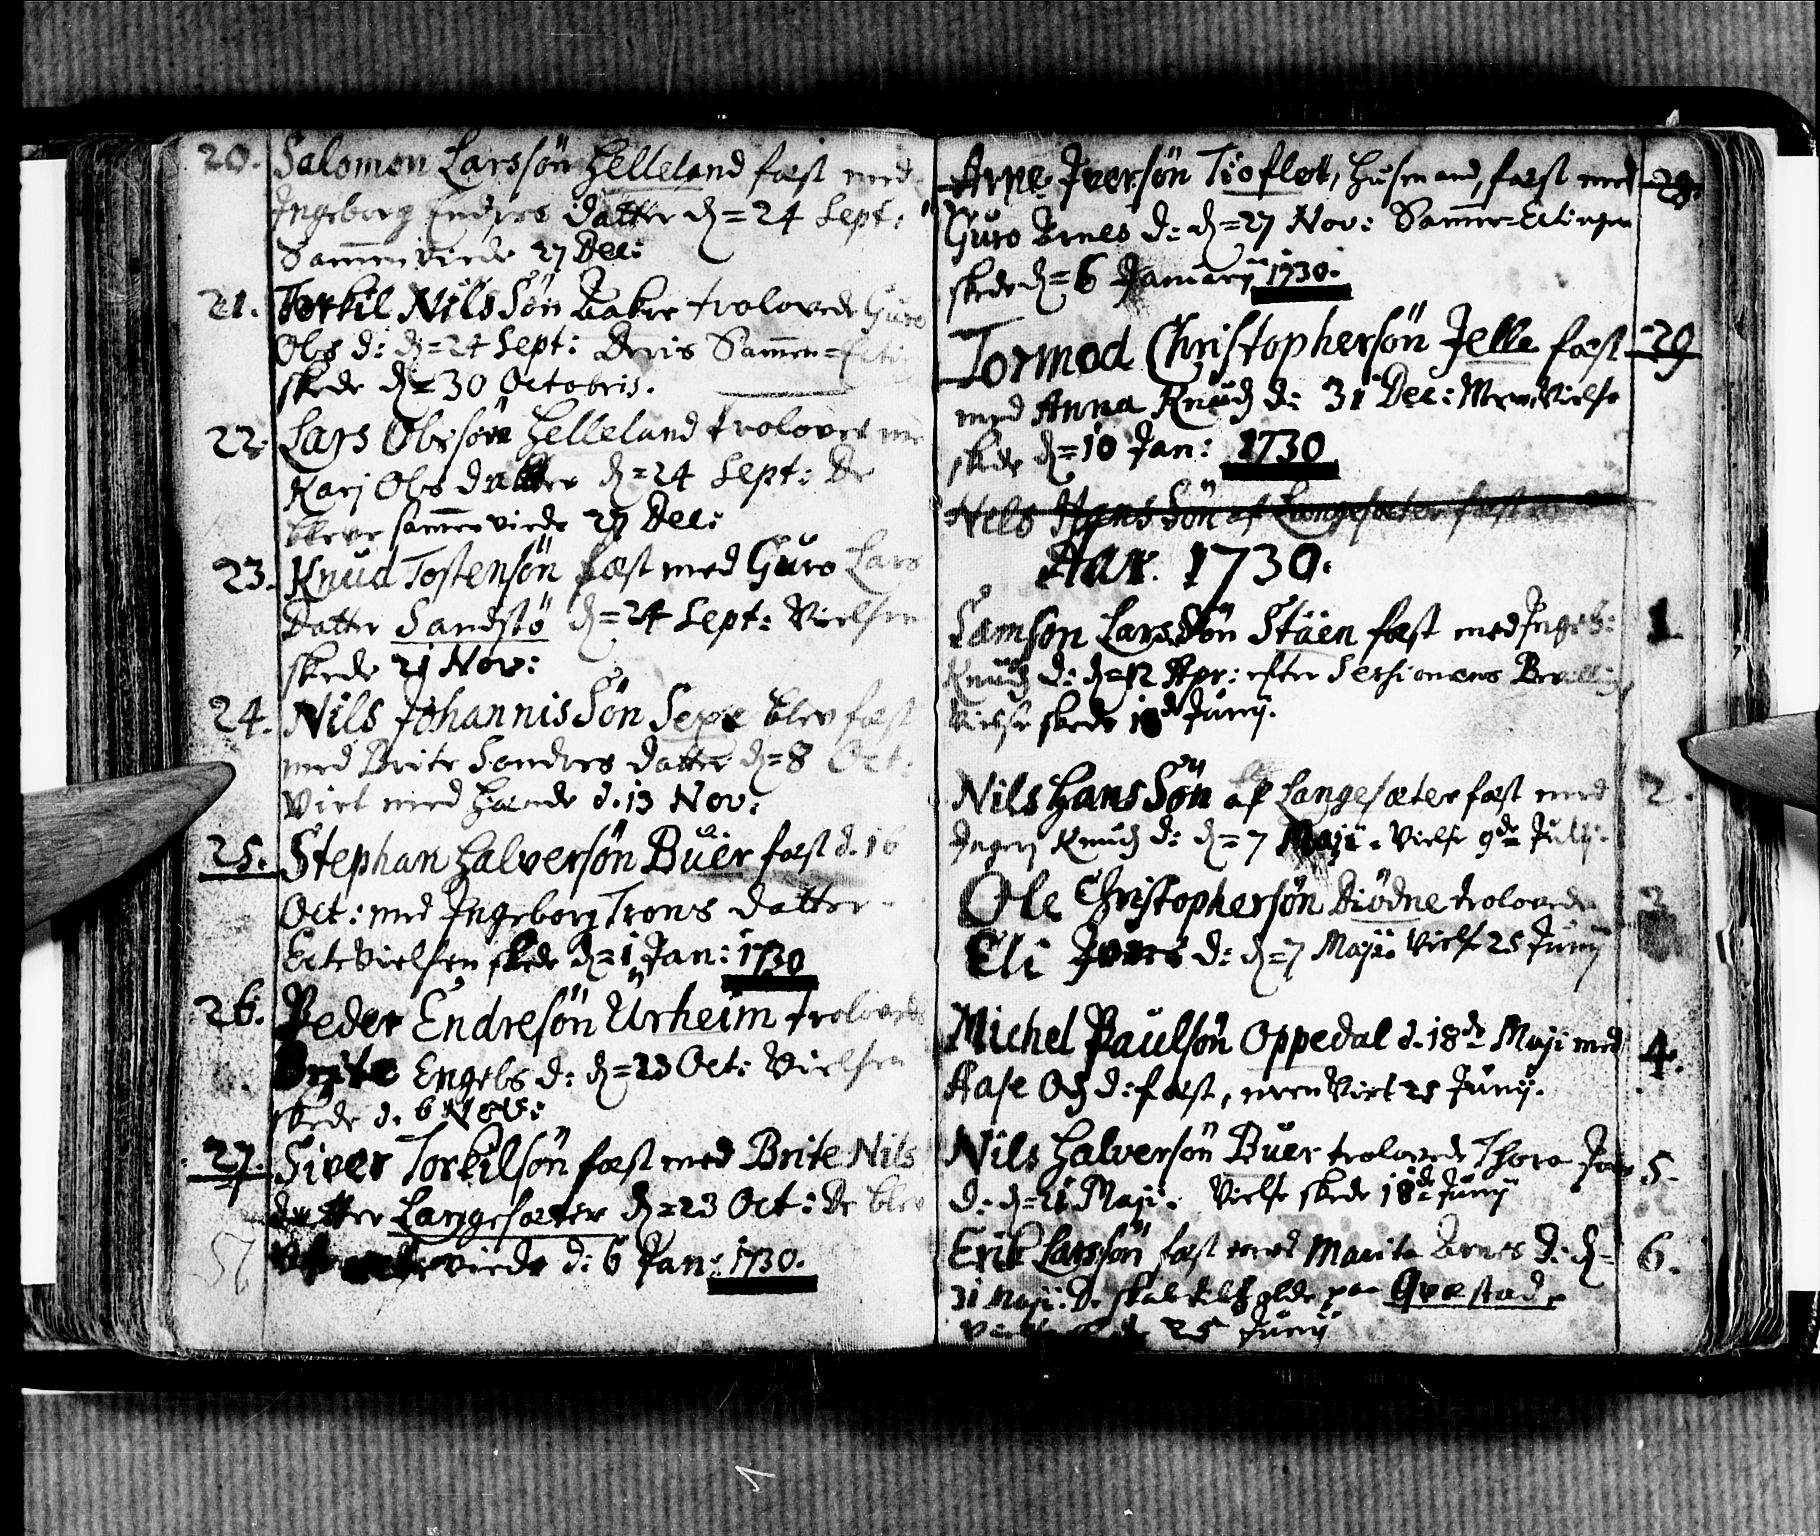 20. Salomon Larssön Helleland fæst med
Ingeborg Endres datter d = 24 Sept:
Sammenviede 27 Dec:
21. Torkil Nils Sön Bakke trolovede Guro
Ols d: d = 24 Sept: Deris Sammen=
skede d = 30 Octobris.
22. Lars Olessön Helleland trolovet
Kari Ols datter d = 24 Sept: De
bleve sammenviede 27 Dec:
23. Knud Tostensön fæst med Guro Lars
Datter Sandstö d = 24 Sept: Vielsen
skede 21 Nov:
24. Nils Johannis Sön Sexe blev fæst
med Brite Sonders datter d = 8 Oct:
Viet med hænde d. 13 Nov:
25. Stephan Halversön Büer fæst d. 16
Oct: med Ingeborg Trons datter
Ecte Vielsen skede d = 1 Jan: 1730
26. Peder Endresön Urheim trolovede
Brite Engels d: d = 23 Oct: Vielsen
skede d. 6 Nov:
27. Siver Torkilsön fæst med Brite Nils
datter Langesæter d = 23 Oct: De blev
viede d: 6 Jan: 1730.
Arne Iversön Tioflot, Husmand, fæst med 28.
Guro Arnes d: d = 27 Nov:
skede d = 6 Januarij 1730.
Tormod Christophersön Jelle fæst 29
med Anna Knuds d: 31 Dec: Vielse
skede d = 10 Jan: 1730
Nels Hans Sön af Langesæter fæst
Aar. 1730.
Samson Lars Sön Stäen fæst med Ingeb: 1
Knuds d: d = 12 Apr: efter Sessionens
Vielse skede 18de Junij.
Nils Hans Sön af Langesæter fæst med 2.
Knuds d: d = 7 Maji. Vielse 9de Julij.
Ole Christophersön Diödne trolovede
Eli Ivers d: d = 7 Maji. Vielse 25 Junij
Michel Paulsön Oppedal d. 18de Maji med 4.
Aase Ols d: fæst, men Viet 25 Junij.
Nils Halversön Büer trolovede Thora 5.
d: d = 21 Maji. Vielse skede 18de Junij
Erik Larssön fæst med Marita Arnes d: d = 6.
31 Maji: De skal paa Qvestad
25 Junij